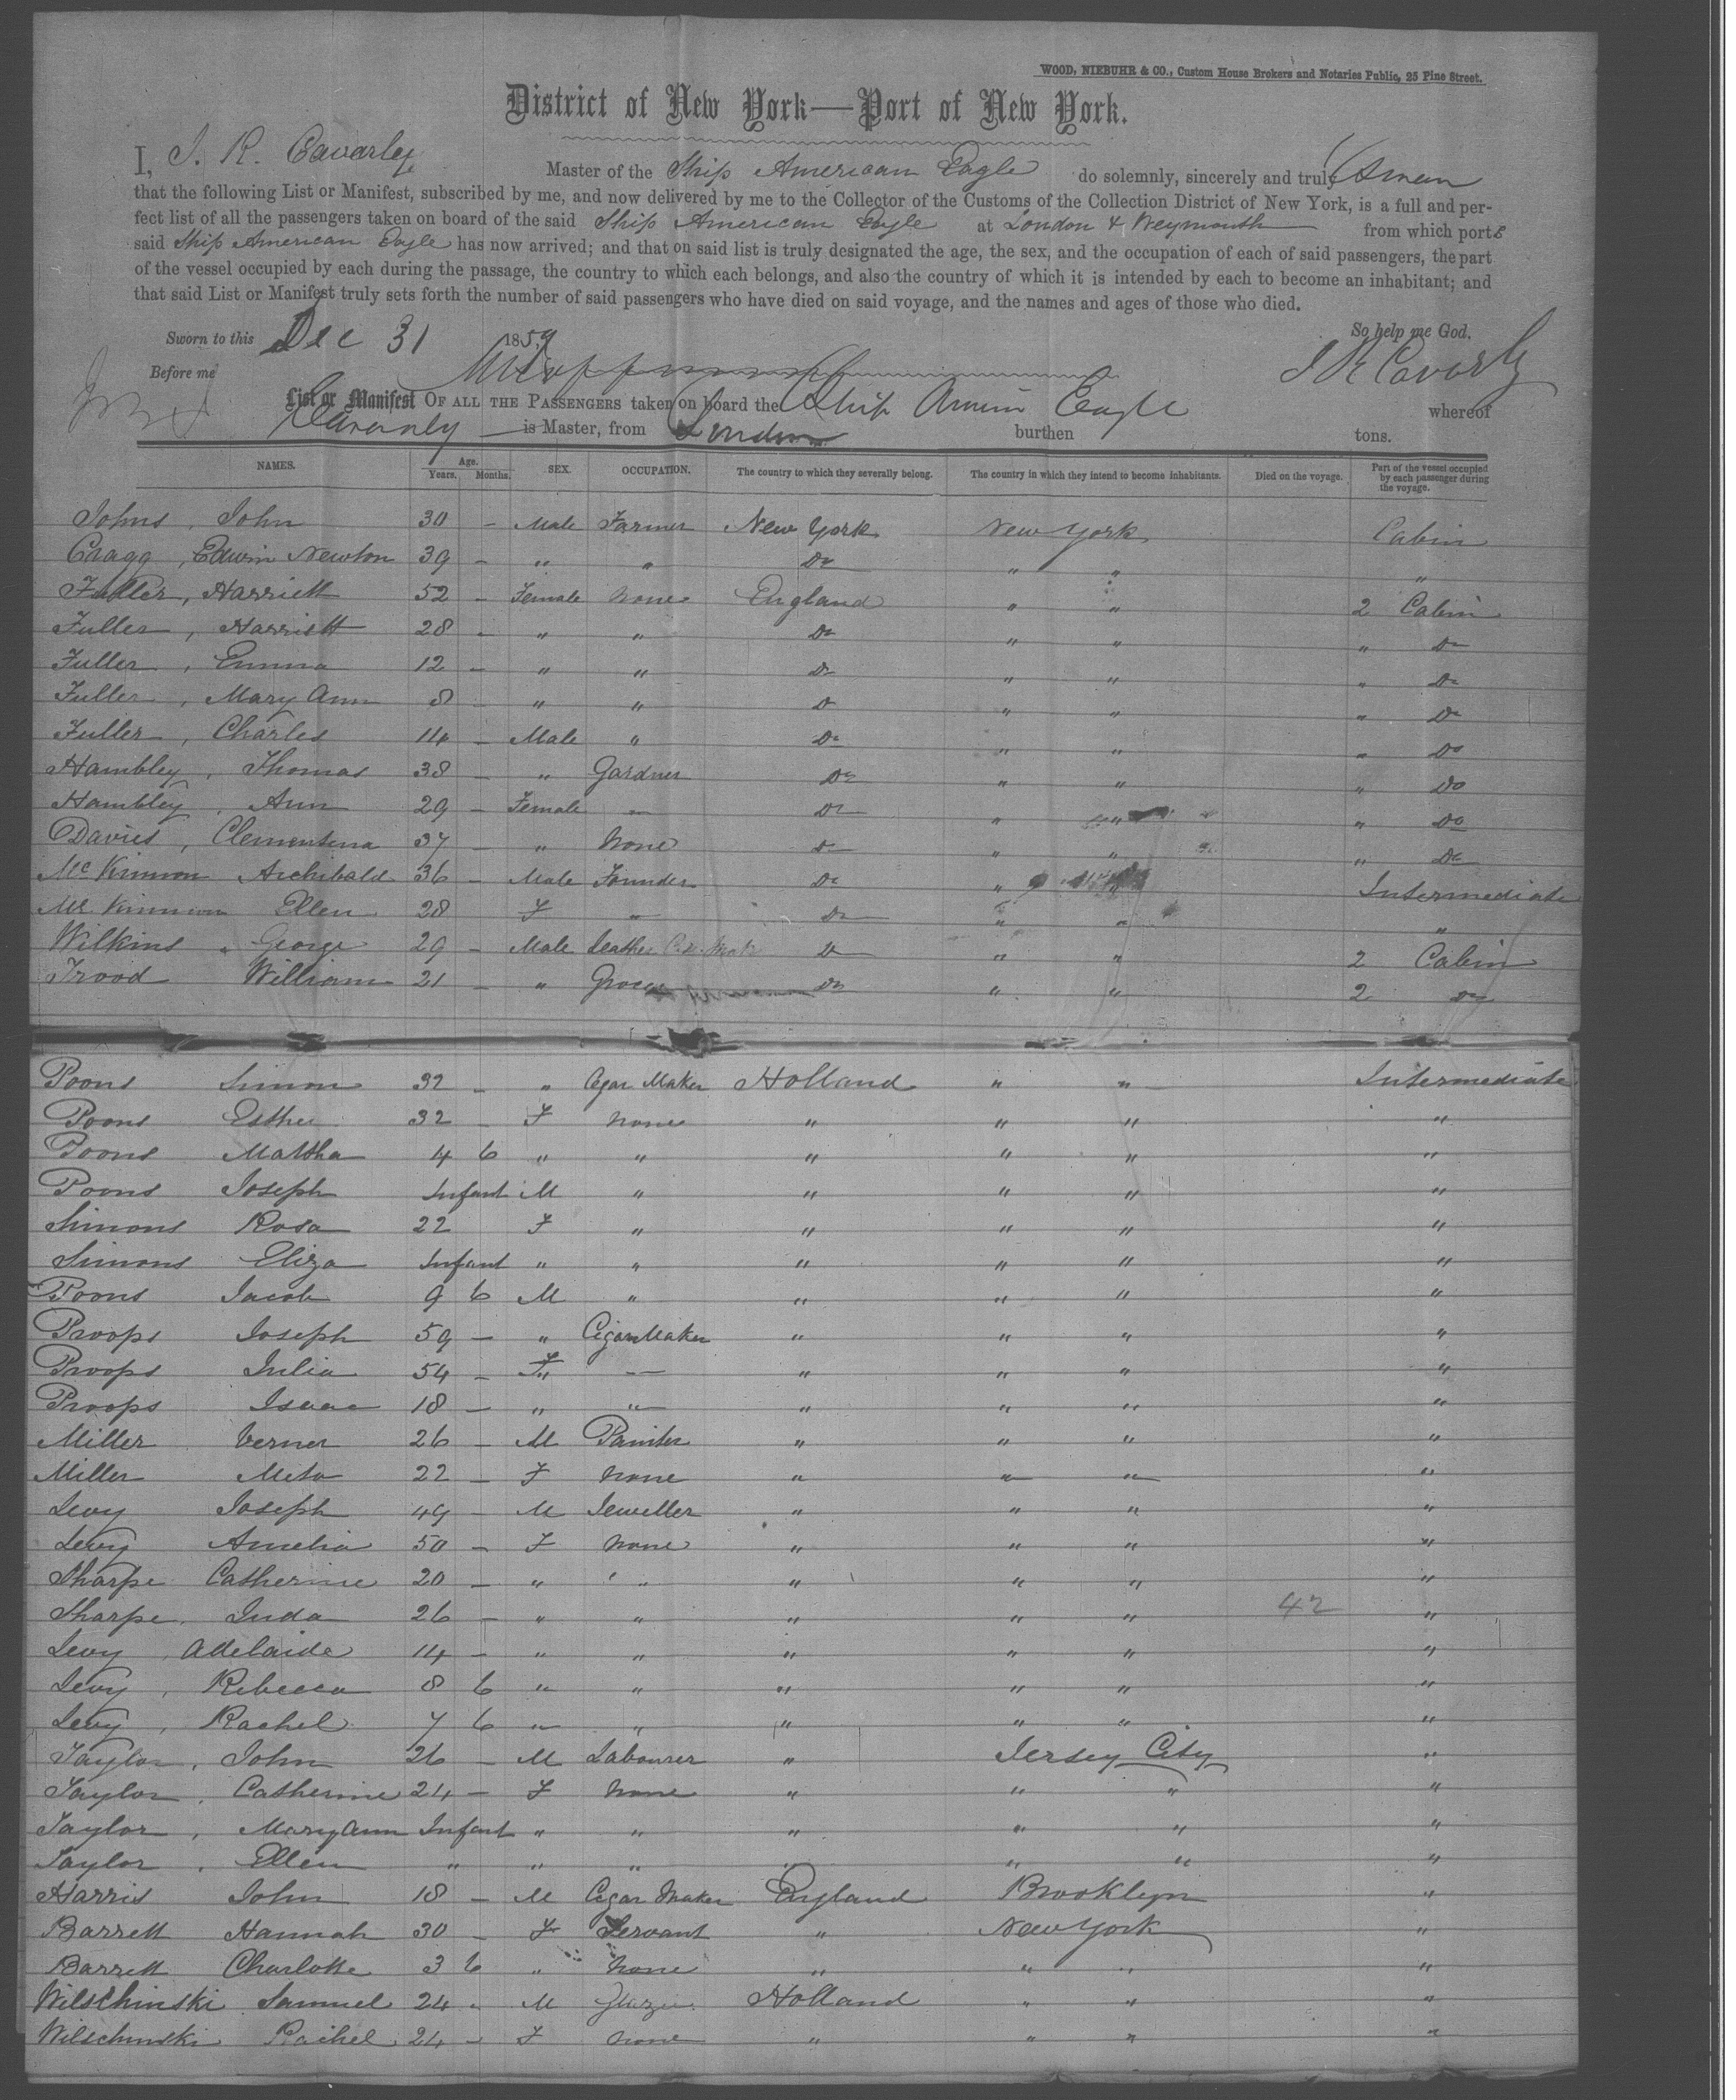 WOOD, NIEBUHR & CO., Custom House Brokers and Notaries Public, 25 Pine Street.
District of New York—Port of New York.
I, J. R. Cavarley Master of the Ship American Eagle do solemnly, sincerely and truly
that the following List or Manifest, subscribed by me, and now delivered by me to the Collector of the Customs of the Collection District of New York, is a full and per-
fect list of all the passengers taken on board of the said Ship American Eagle at London & Weymouth from which ports
said Ship American Eagle has now arrived; and that on said list is truly designated the age, the sex, and the occupation of each of said passengers, the part
of the vessel occupied by each during the passage, the country to which each belongs, and also the country of which it is intended by each to become an inhabitant; and
that said List or Manifest truly sets forth the number of said passengers who have died on said voyage, and the names and ages of those who died.
Sworn to this Dec 31 1859 So help me God.
Before me J R Caverly
List or Manifest OF ALL THE PASSENGERS taken on board the Ship Amern Eagle whereof
Cavernly is Master, from London burthen tons.
NAMES. Age. Years. Months. SEX. OCCUPATION. The country to which they severally belong. The country in which they intend to become inhabitants. Died on the voyage. Part of the vessel occupied by each passenger during the voyage.
Johns, John 30 - Male Farmer New York New York Cabin
Cragg, Edwin Newton 39 - " " Do " " "
Fuller, Harriett 52 - Female None England " " 2 Cabin
Fuller, Harriett 28 - " " Do " " " Do
Fuller, Emma 12 - " " Do " " " Do
Fuller, Mary Ann 8 - " " Do " " " Do
Fuller, Charles 14 - Male " Do " " " Do
Hambley, Thomas 38 - " Gardner Do " " " Do
Hambley, Ann 29 - Female - Do " " " Do
Davies, Clementina 37 - " None Do " " " Do
McKinnon Archibald 36 - Male Founder Do " " Intermediate
McKinnon Ellen 28 F - Do " " "
Wilkins, George 29 - Male Leather Do " " 2 Cabin
Trood William 21 - " Grocer Do " " 2 Do
Poons Simon 32 - " Cigar Maker Holland " " Intermediate
Poons Esther 32 - F None " " " "
Poons Martha 4 6 " " " " " "
Poons Joseph Infant M " " " " "
Simons Rosa 22 F " " " " "
Simons Eliza Infant " " " " " "
Poons Jacob 9 6 M " " " " "
Proops Joseph 59 - " Cigar Maker " " " "
Proops Julia 54 - F - " " " "
Proops Isaac 18 - " " " " " "
Miller Verner 26 - M Painter " " " "
Miller Meta 22 - F None " " " "
Levy Joseph 49 - M Jeweller " " " "
Levy Amelia 50 - F None " " " "
Sharpe Catherine 20 - " " " " " "
Sharpe Juda 26 - " " " " " 42 "
Levy, Adelaide 14 - " " " " " "
Levy, Rebecca 8 6 " " " " " "
Levy, Rachel 7 6 " " " " " "
Taylor, John 26 - M Labourer " Jersey City "
Taylor, Catherine 24 - F None " " " "
Taylor, Mary Ann Infant " " " " " "
Taylor, Ellen " " " " " " "
Harris John 18 - M Cigar Maker England Brooklyn "
Barrett Hannah 30 - F Servant " New York "
Barrett Charlotte 3 6 " None " " " "
Wilschinski Samuel 24 - M Glazier Holland " " "
Wilschinski Rachel 24 - F None " " " "